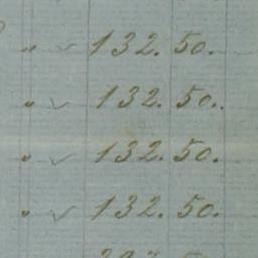 " ✓ 132. 50.
" ✓ 132. 50.
" ✓ 132. 50.
" ✓ 132. 50.